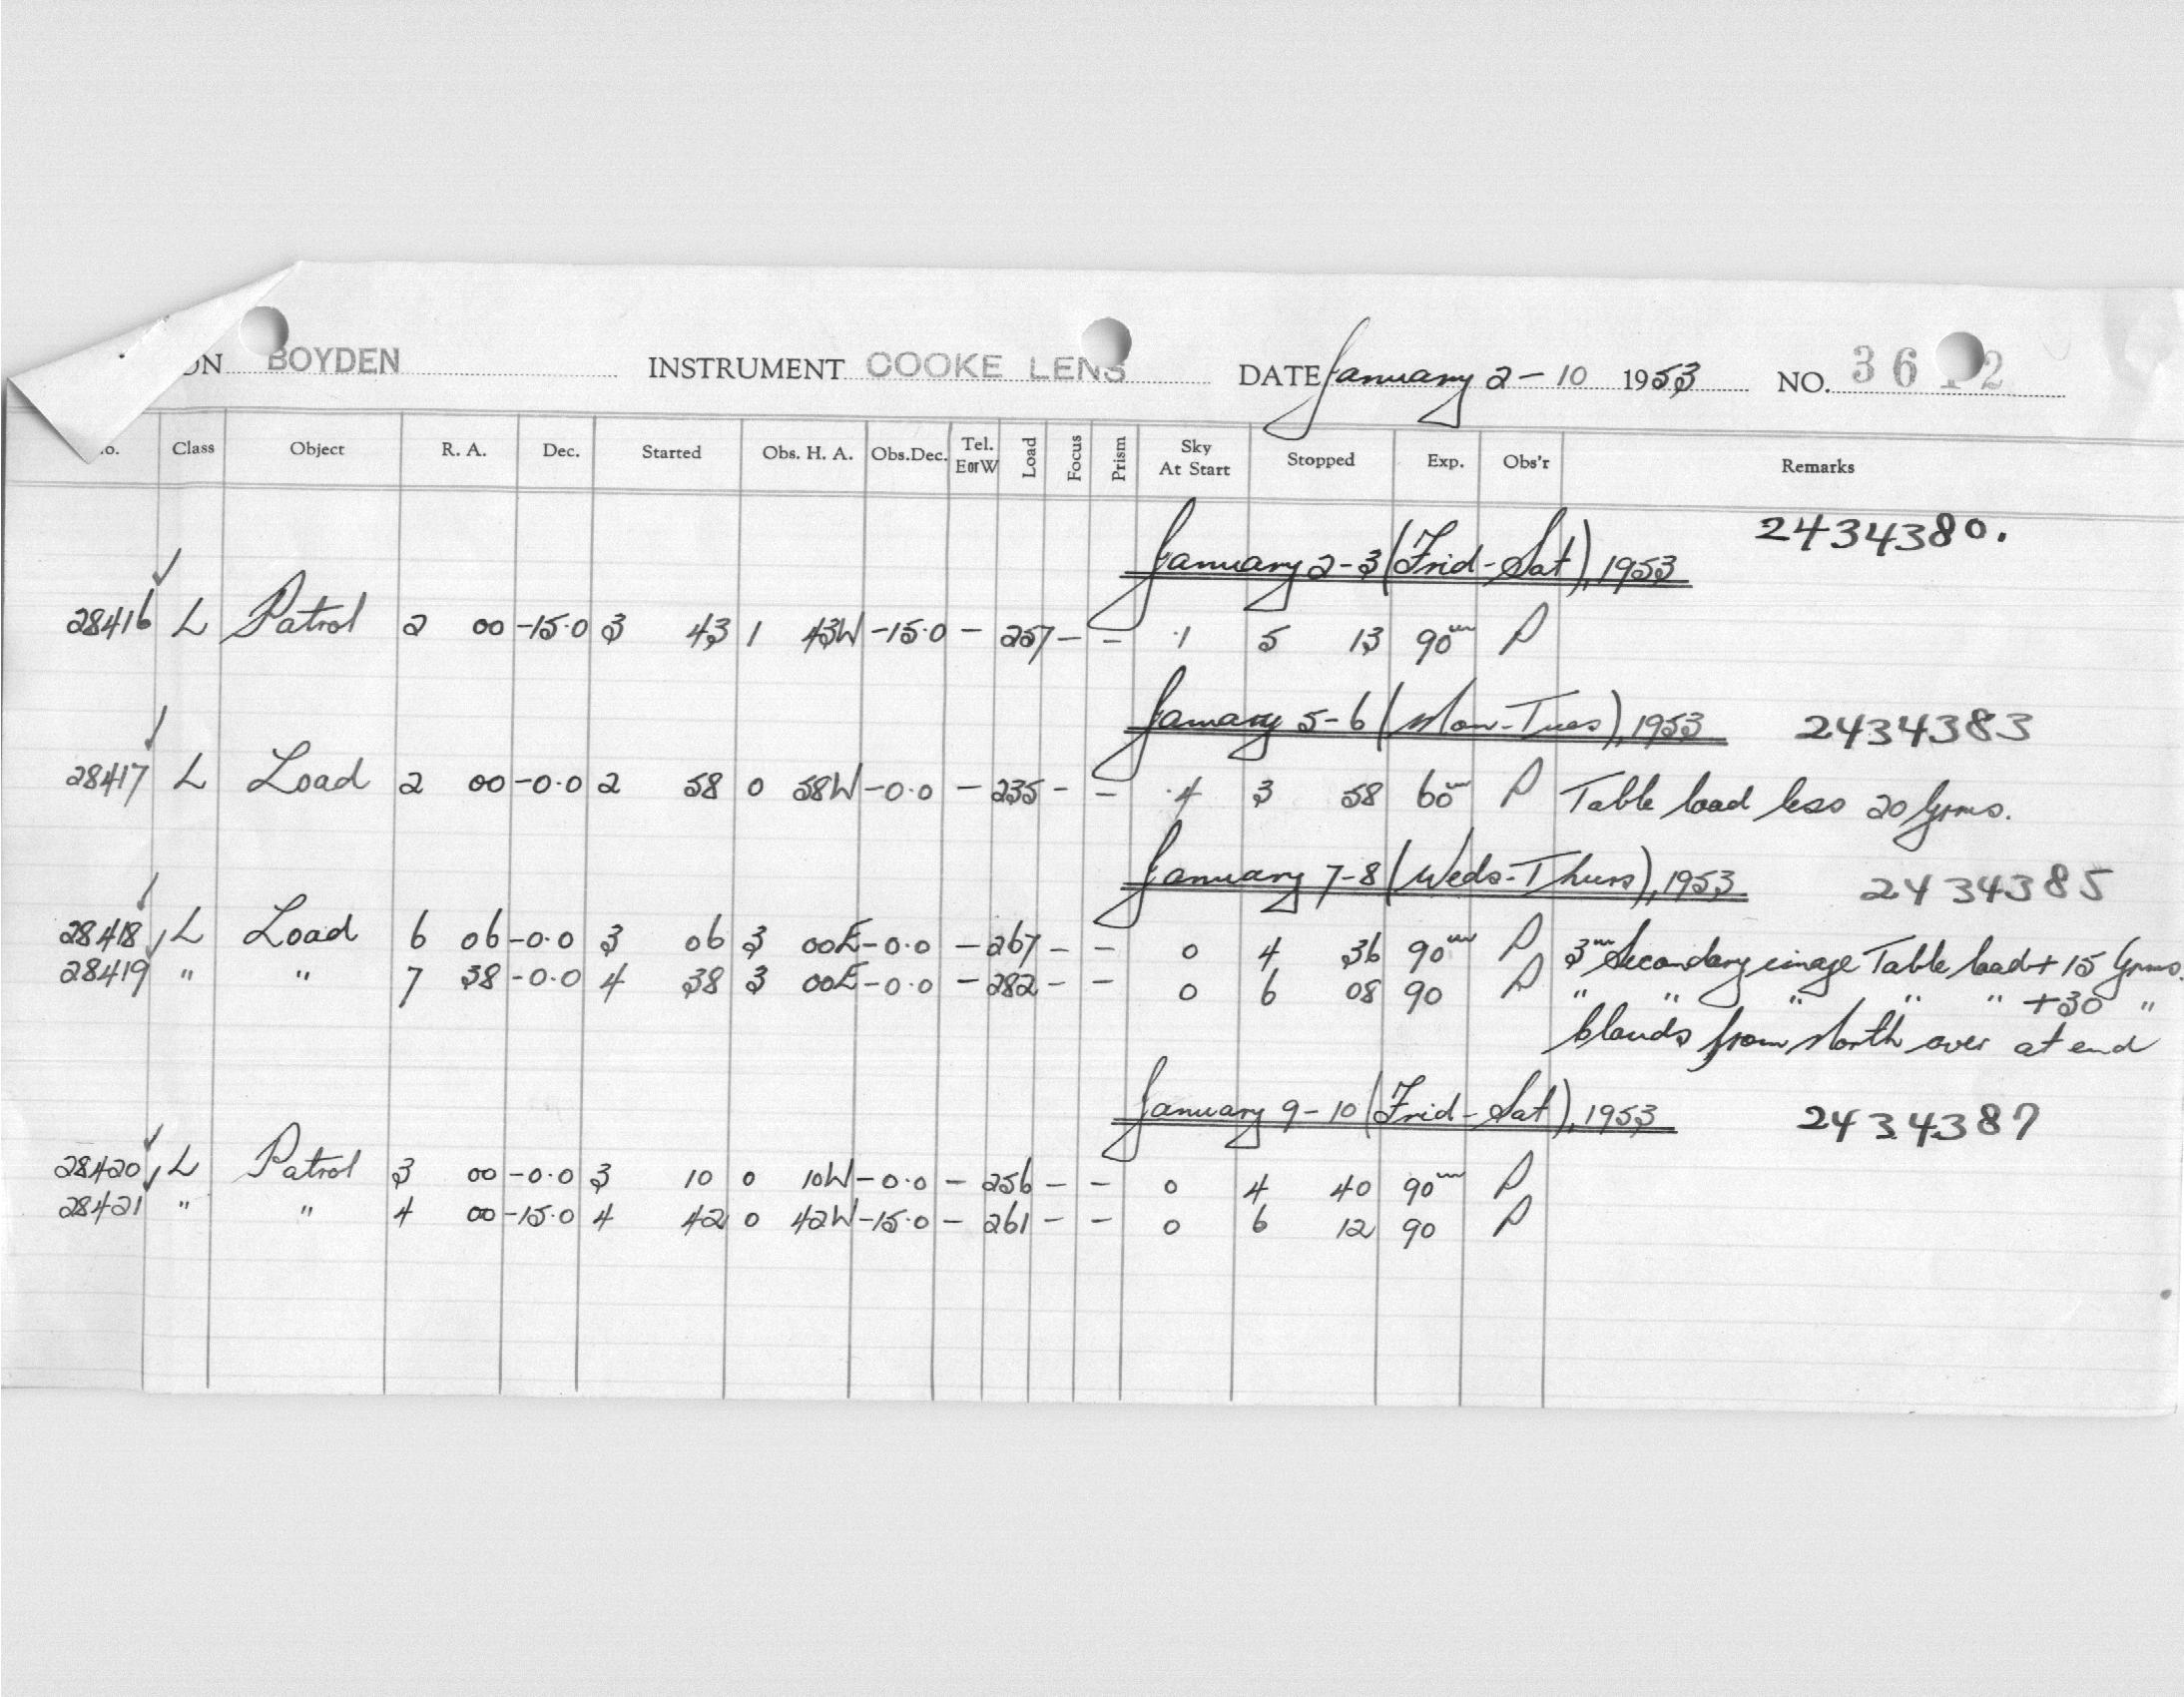 ON BOYDEN INSTRUMENT COOKE LENS DATE January 2-10 1953 NO. 36 2
o. Class Object R. A. Dec. Started Obs. H. A. Obs.Dec. Tel. E or W Load Focus Prism Sky At Start Stopped Exp. Obs'r Remarks
January 2-3 (Frid-Sat), 1953 2434380.
28416 L Patrol 2 00 -15.0 3 43 1 43W -15.0 - 257 - - .1 5 13 90m P
January 5-6 (Mon-Tues), 1953 2434383
28417 L Load 2 00 -0.0 2 58 0 58W -0.0 - 235 - - .4 3 58 60m P Table load less 20 Grms.
January 7-8 (Weds-Thurs), 1953 2434385
28418 L Load 6 06 -0.0 3 06 3 00E -0.0 - 267 - - 0 4 36 90m P 3m Secondary image Table load + 15 Grms.
28419 " " 7 38 -0.0 4 38 3 00E -0.0 - 282 - - 0 6 08 90 P " " " " " +30 "
Clouds from North over at end
January 9-10 (Frid-Sat), 1953 2434387
28420 L Patrol 3 00 -0.0 3 10 0 10W -0.0 - 256 - - 0 4 40 90m P
28421 " " 4 00 -15.0 4 42 0 42W -15.0 - 261 - - 0 6 12 90 P